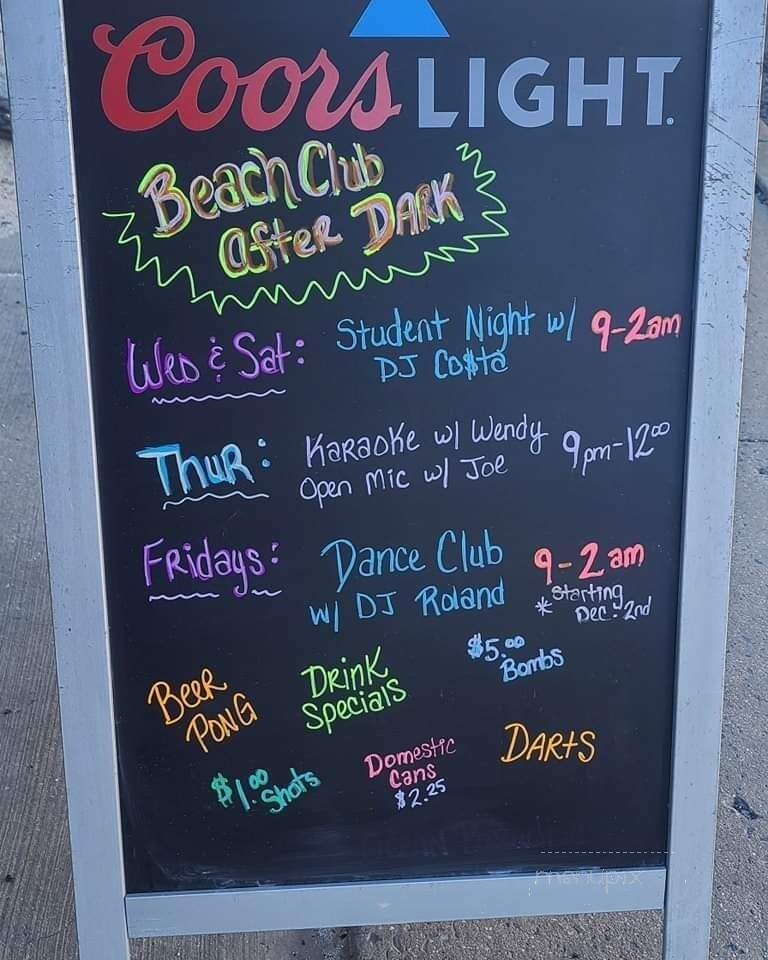 Coors LIGHT.
Beach Club
After DARK
Wed & Sat: Student Night w/ 9-2am
DJ Co$ta
Thur: Karaoke w/ Wendy 9pm-12⁰⁰
Open Mic w/ Joe
Fridays: Dance Club 9-2am
w/ DJ Roland *Starting
Dec. 2nd
$5.⁰⁰
Bombs
Beer
Pong
Drink
Specials
$1.⁰⁰ Shots
Domestic
Cans
$2.25
Darts
menupix